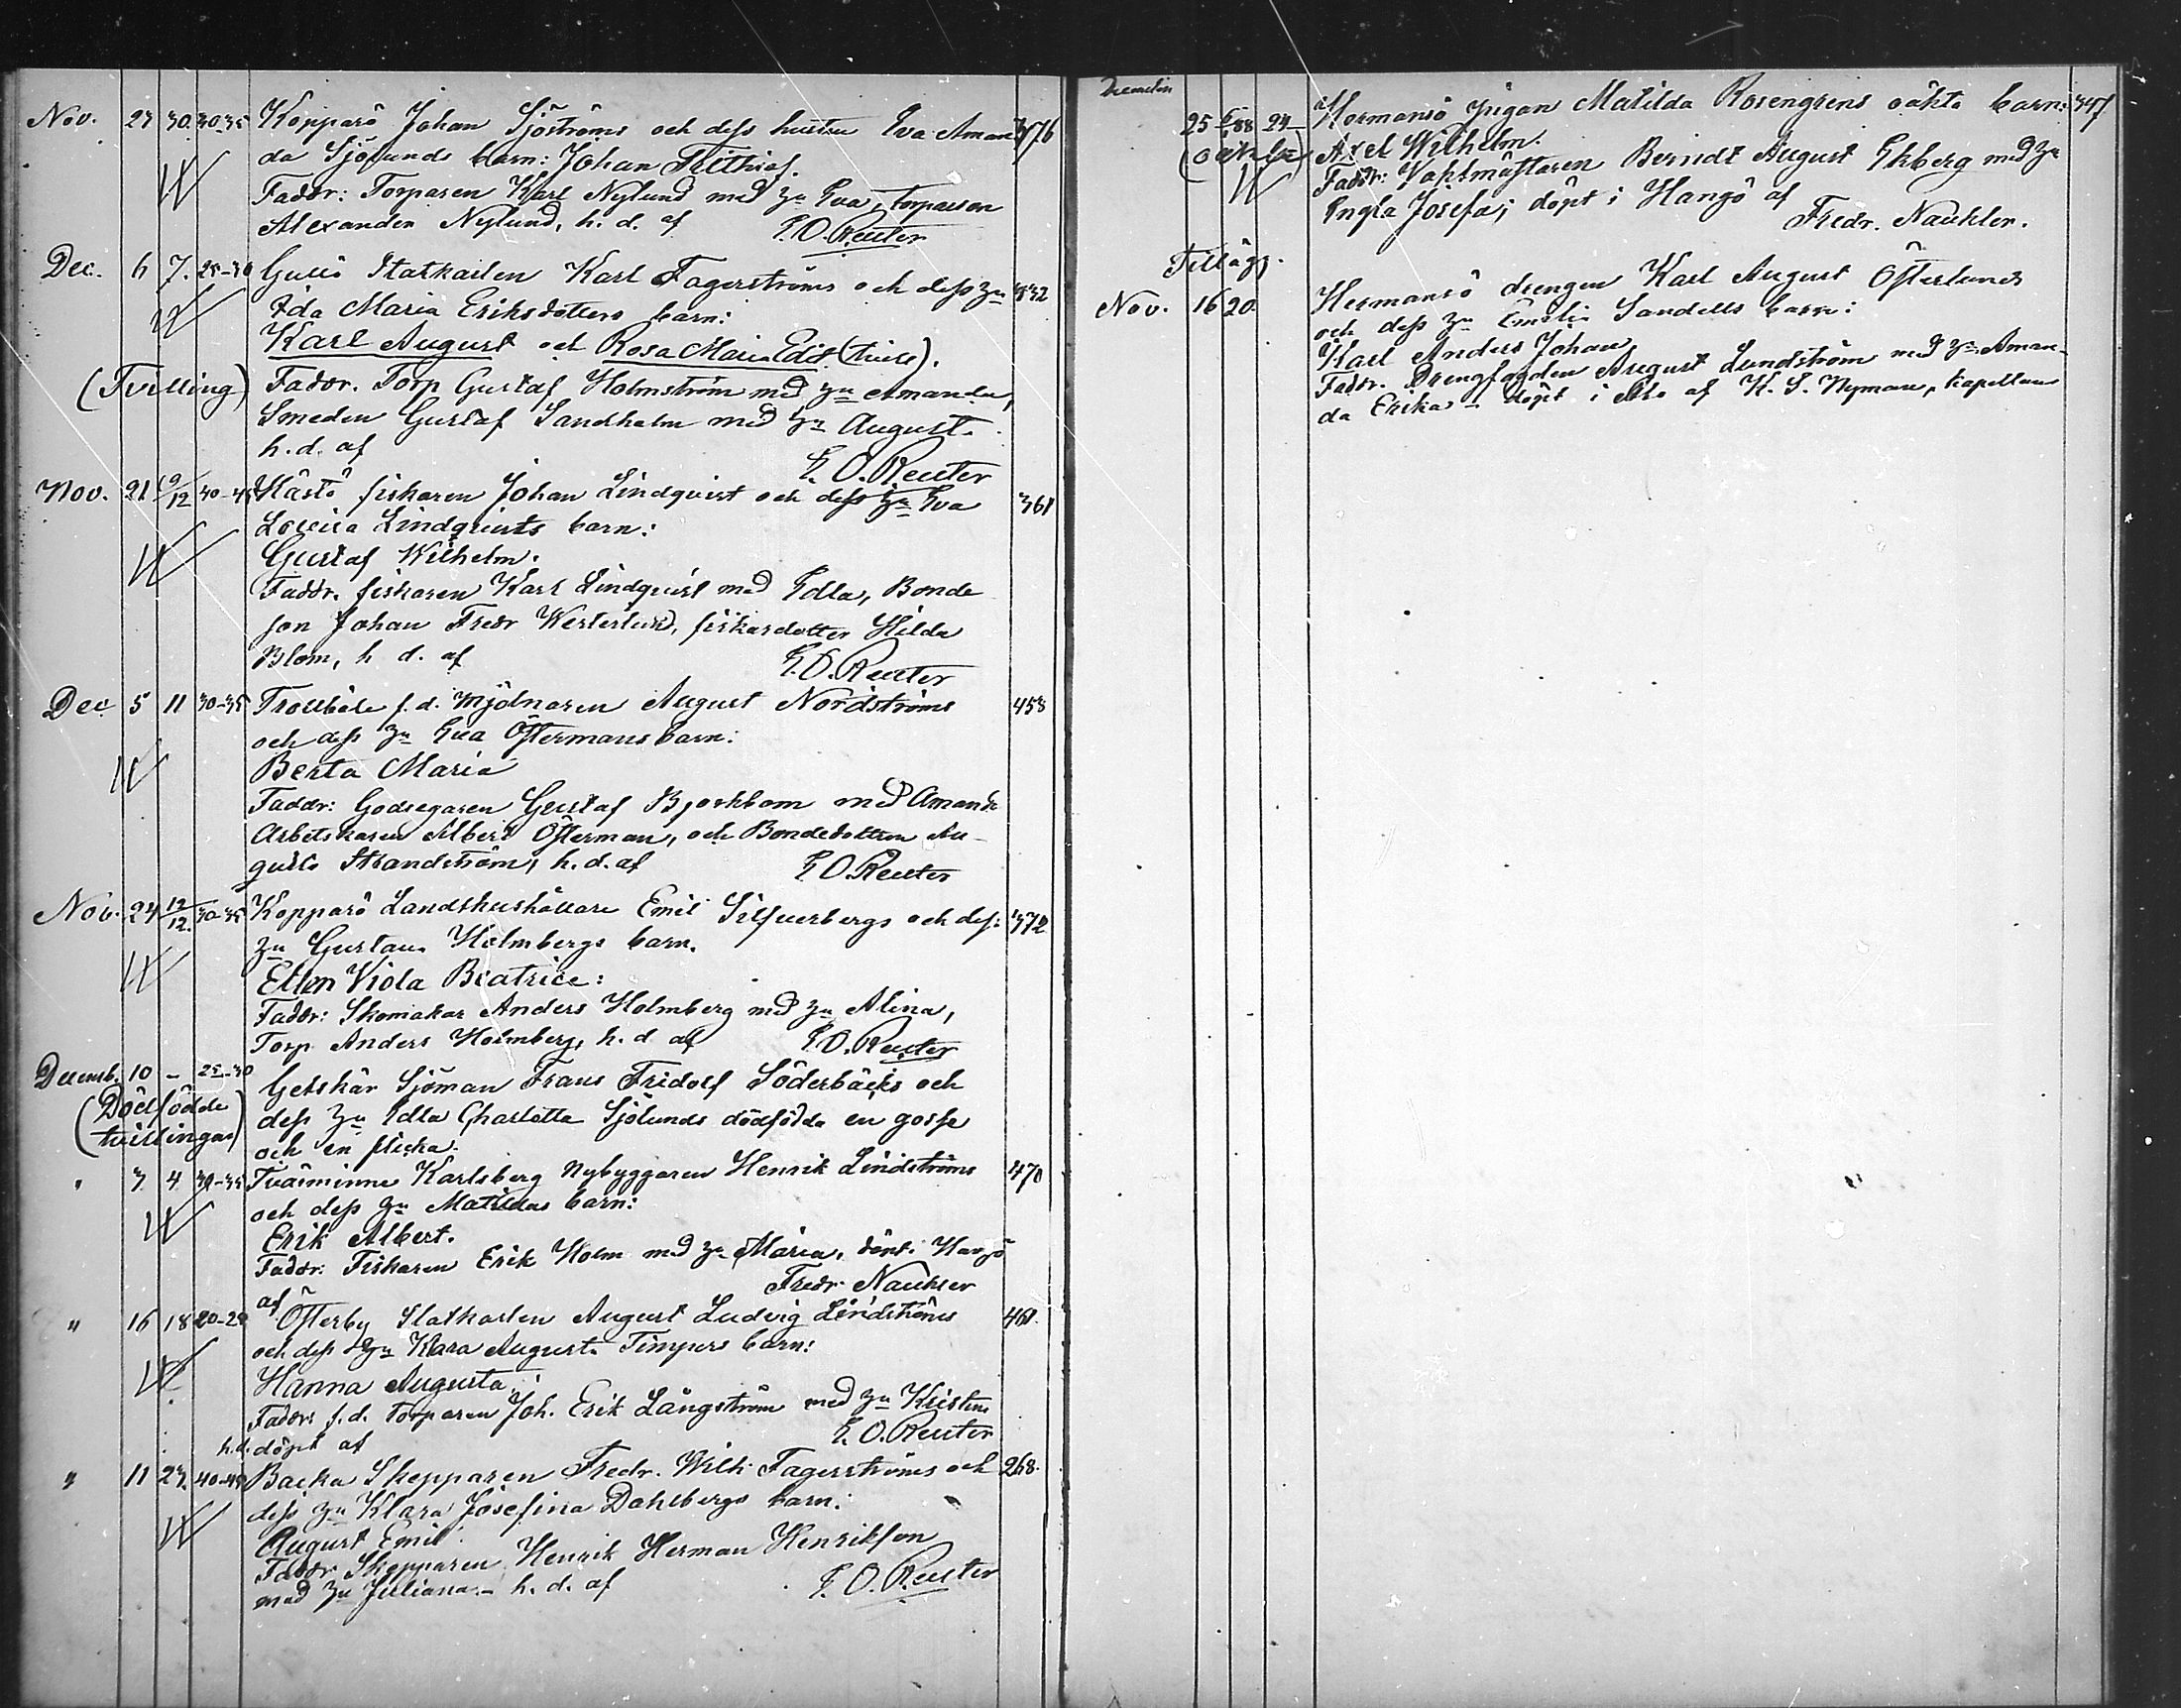 Nov. 27 30. 30-35 Kopparö Johan Sjöströms och dess hustru Eva Aman- 376
da Sjölunds barn: Johan Frithiof.
Faddr: Torparen Karl Nylund med hu Eva, torpareson
Alexander Nylund, h. d. af E. O. Reuter
Dec. 6 7. 25-30 Gullö Statkarlen Karl Fagerströms och dess hu 332
Ida Maria Eriksdotters barn:
Karl August och Rosa Maria Edit (tvill).
(Tvilling) Faddr. Torp Gustaf Holmström med hu Amanda,
Smeden Gustaf Sandholm med hu August.
h. d. af E. O. Reuter
Nov. 21 9/12 40-45 Hästö fiskaren Johan Lindqvist och dess hu Eva 361
Lovisa Lindqvists barn:
Gustaf Wilhelm.
Faddr. fiskaren Karl Lindqvist med Edla, Bonde
son Johan Fredr Westerlund, fiskardotter Hilda
Blom, h. d. af E. O. Reuter
Dec 5 11 30-35 Trollböle f. d. Mjölnaren August Nordströms 458
och dess hu Eva Östermans barn:
Berta Maria
Faddr: Godsegaren Gustaf Bjorkbom med Amanda
Arbetskaren Albert Österman, och Bondedottern Au-
gusta Strandström, h. d. af E. O. Reuter
Nov. 24 12/12. 30-35 Kopparö Landthushållare Emil Silfverbergs och dess: 372
hu Gustava Holmbergs barn.
Ellen Viola Beatrice:
Faddr: Skomakar Anders Holmberg med hu Alina,
Torp. Anders Holmberg, h. d af E. O. Reuter
Decemb. 10 - 25-30 Getskär Sjöman Frans Fridolf Söderbäcks och
(Dödfödde dess hu Edla Charlotta Sjölunds dödfödda en gosse
tvillingar) och en flicka.
" 3 4 30-35 Tvärminne Karlsberg Nybyggaren Henrik Lindströms 470
och dess hu Matildas barn:
Erik Albert.
Faddr: Fiskaren Erik Holm med hu Maria, döpt i Hangö
af Fredr. Naukler
" 16 18 20-25 Österby Statkarlen August Ludvig Lindströms 461.
och dess hu Klara August. Timpers barn:
Hanna Augusta:
Faddr: f. d. Torparen Joh. Erik Långström med hu Kristina
h. d. döpt af E. O. Reuter
" 11 27. 40-45 Backa Skepparen Fredr. Wilh. Fagerströms och 268.
dess hu Klara Josefina Dahlbergs barn:
August Emil
Faddr Skepparen Henrik Herman Henrikson
med hu Juliana. - h. d. af E. O. Reuter
25 88 24- Hermansö Pigan Matilda Rosengrens oäkta barn: 347
(oäkta) Axel Wilhelm.
Faddr: Vaktmästaren Berndt August Ekberg med hu
Engla Josefa; döpt i Hangö af
Fredr. Naukler.
Tillägg.
Nov. 16 20. Hermansö drengen Karl August Österlunds
och dess hu Emelia Sandells barn:
Karl Anders Johan
Faddr. Drengfogden August Lundström med hu Aman-
da Erika - döpt i Åbo af K. S. Nyman, kapellan